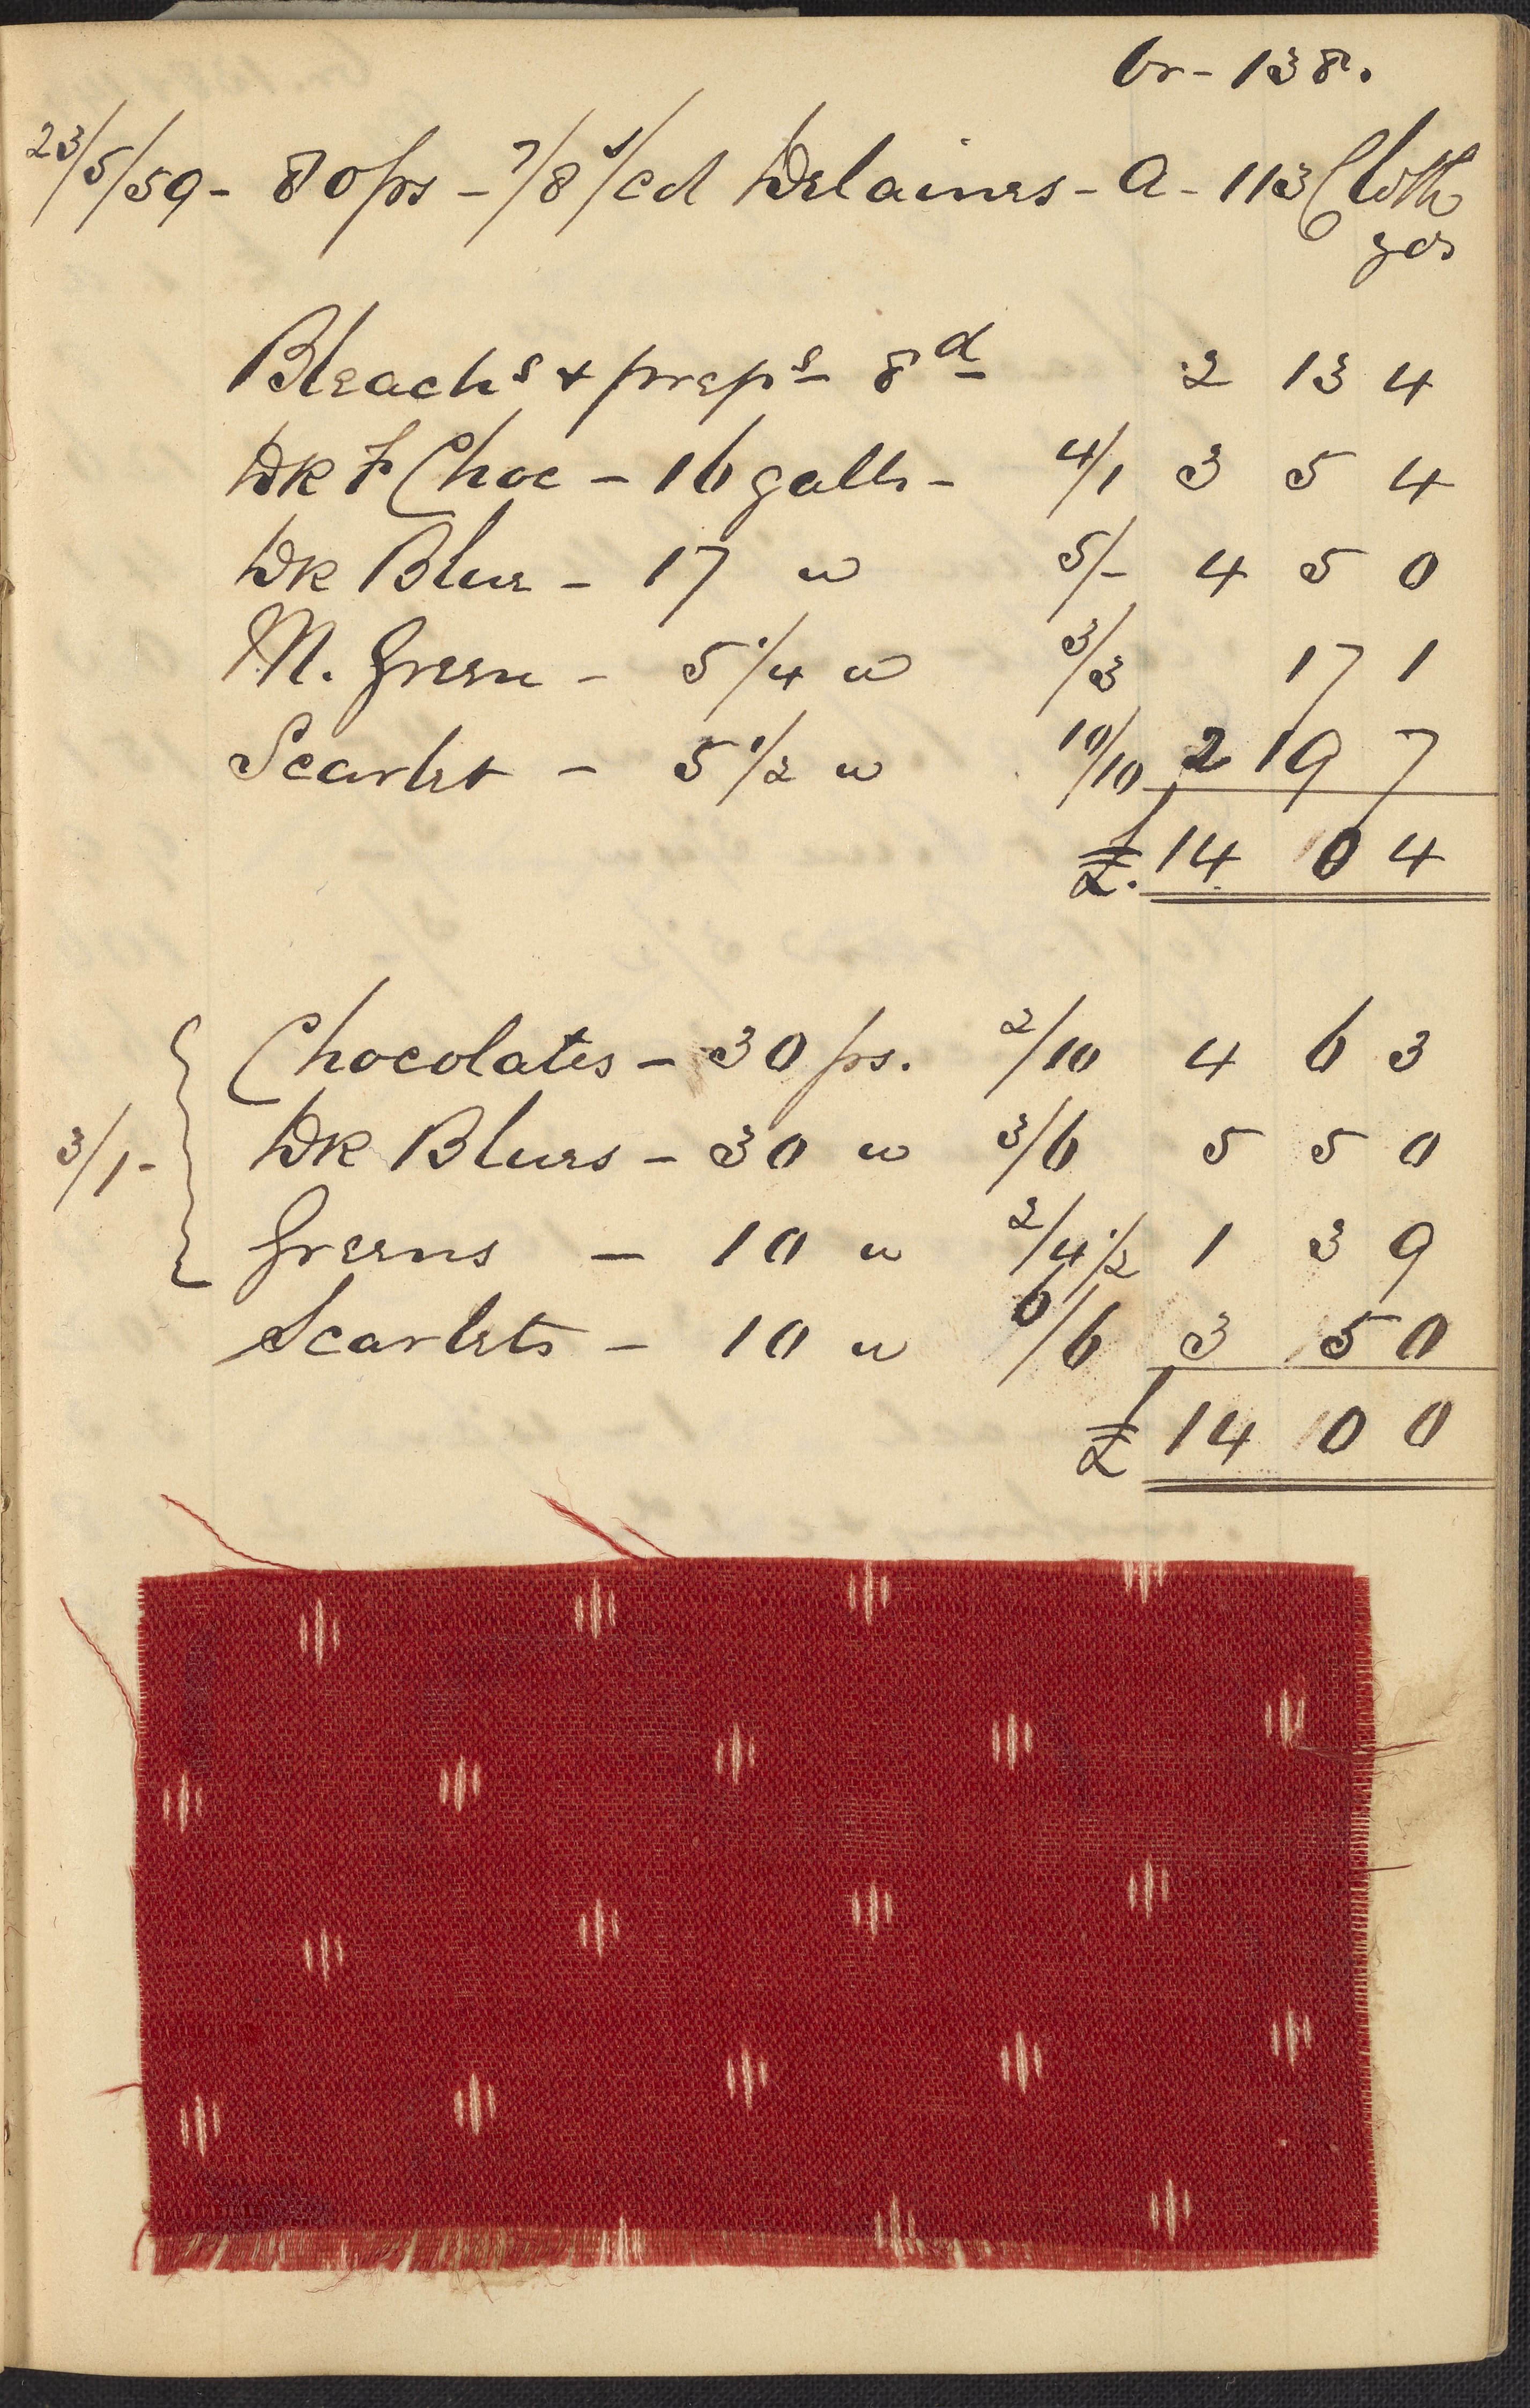 br - 138.
23/5/59 - 80 ps - 7/8 s/cd Delaines - A - 113 Cloth
gds
Bleachs & preps - 8d 2 13 4
Dk F Choc - 16 galls - 4/1 3 5 4
Dk Blue - 17 " 5/- 4 5 0
M. Green - 5 1/4 " 3/3 17 1
Scarlet - 5 1/2 " 10/10 2 19 7
£. 14 0 4
Chocolates - 30 ps. 2/10 4 6 3
3/1 - Dk Blues - 30 " 3/6 5 5 0
Greens - 10 " 2/4 1/2 1 3 9
Scarlets - 10 " 6/6 3 5 0
£ 14 0 0